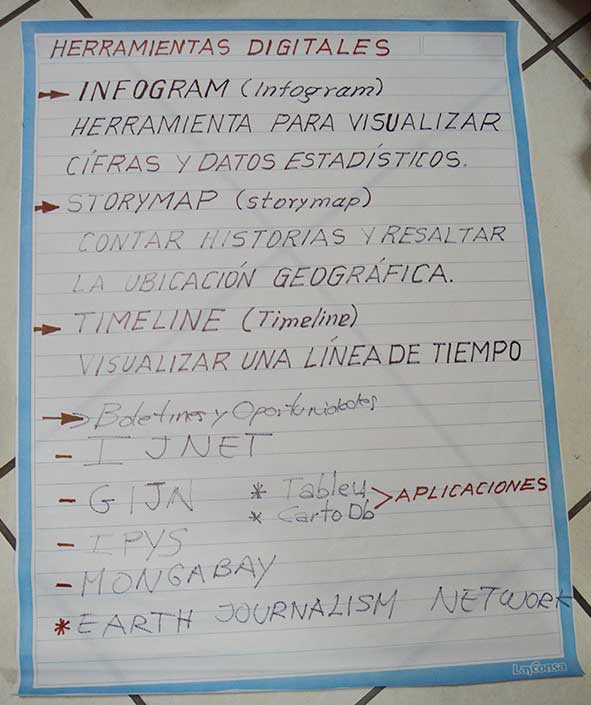 HERRAMIENTAS DIGITALES
→ INFOGRAM (Infogram)
HERRAMIENTA PARA VISUALIZAR
CIFRAS Y DATOS ESTADÍSTICOS.
→ STORYMAP (storymap)
CONTAR HISTORIAS Y RESALTAR
LA UBICACIÓN GEOGRÁFICA.
→ TIMELINE (Timeline)
VISUALIZAR UNA LÍNEA DE TIEMPO
→ Boletines y Oportunidades
- IJNET
- GIJN * Tableu > APLICACIONES
* CartoDb
- IPYS
- MONGABAY
* EARTH JOURNALISM NETWORK
LayConsa